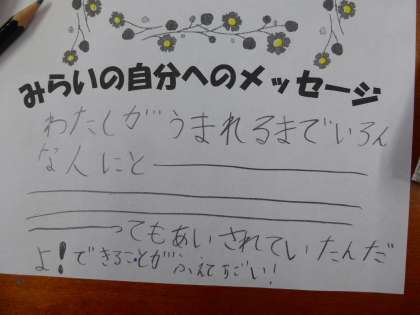 みらいの自分へのメッセージ
わたしがうまれるまでいろん
な人にと
ってもあいされていたんだ
よ!できることがふえてすごい!